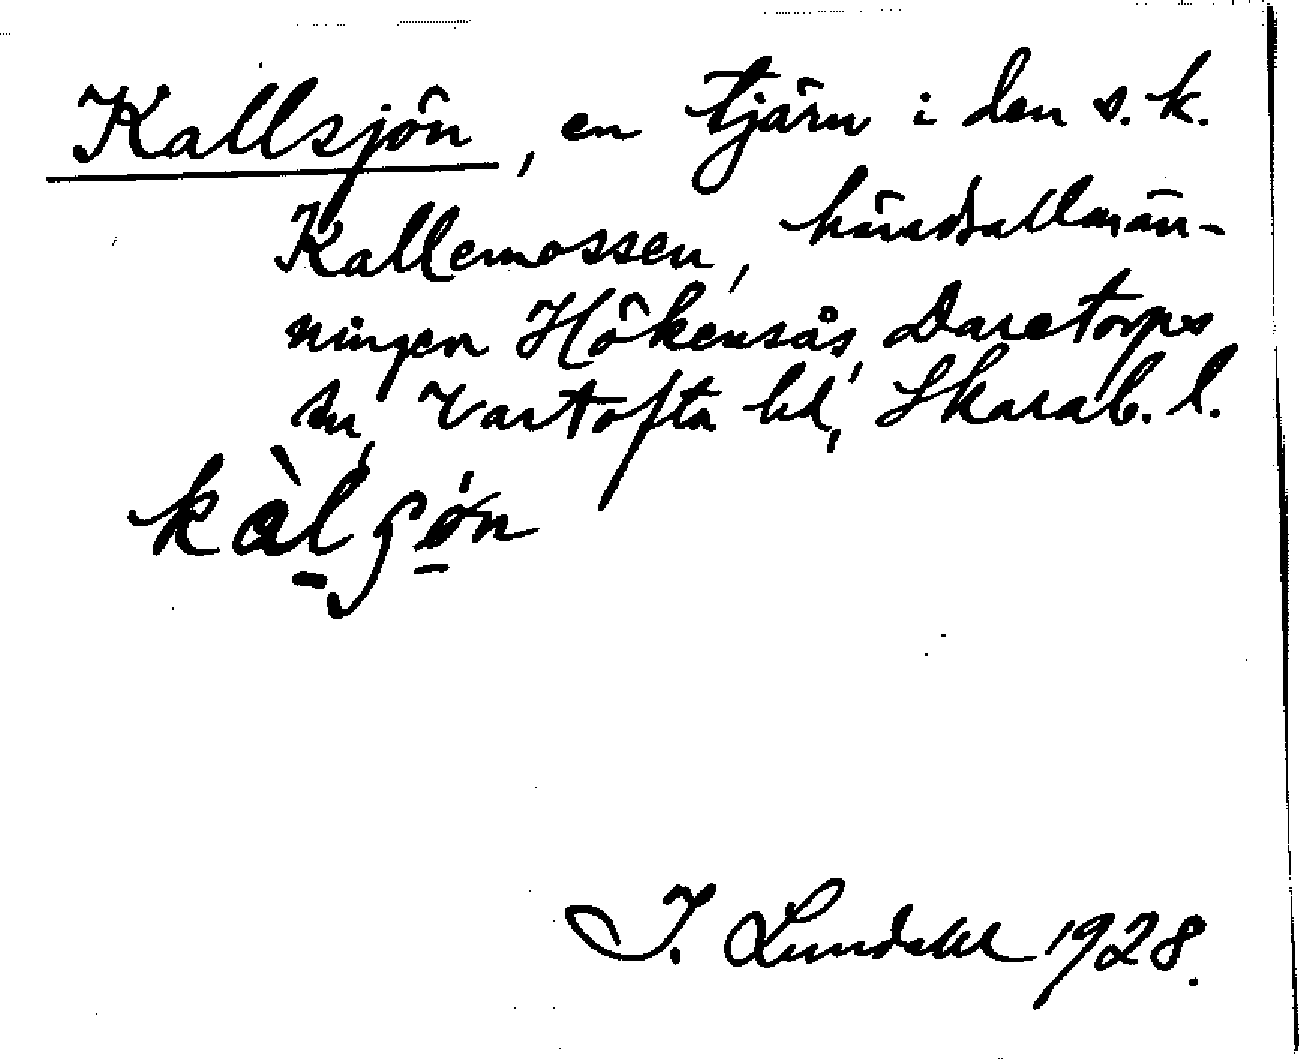 Kallsjön, en tjärn i den s.k.
Kallemossen, häradsallmän-
ningen Hökensås, Daretorps
sn, Vartofta hd, Skarab. l.
kàlʃø̀n
I. Lundahl 1928.